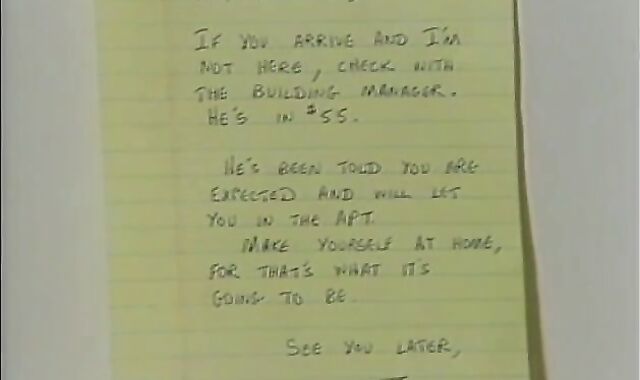 IF YOU ARRIVE AND I'M
NOT HERE, CHECK WITH
THE BUILDING MANAGER.
HE'S IN #55.
HE'S BEEN TOLD YOU ARE
EXPECTED AND WILL LET
YOU IN THE APT.
MAKE YOURSELF AT HOME,
FOR THAT'S WHAT IT'S
GOING TO BE.
SEE YOU LATER,